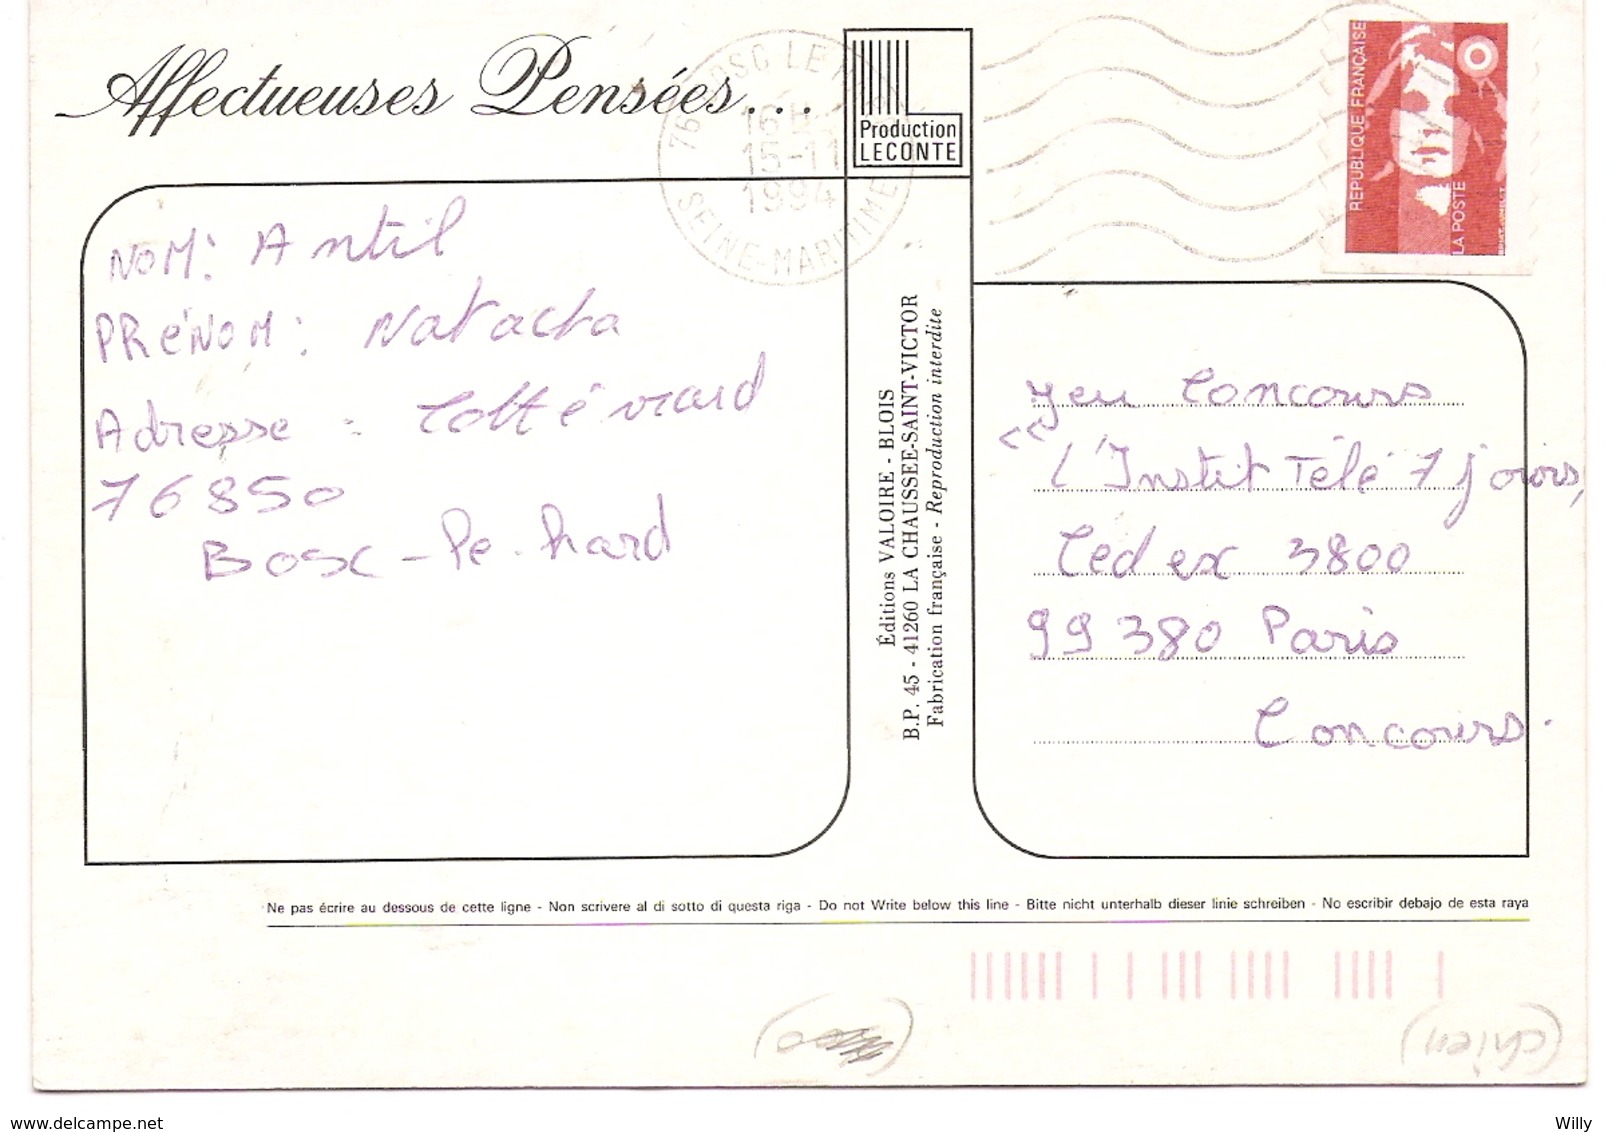 Affectueuses Pensées...
Production
LECONTE
76 BOSC LE H
16H
15-11
1994
SEINE-MARITIME
REPUBLIQUE FRANÇAISE
LA POSTE
NOM: Antil
PRéNOM: Natacha
Adresse : Cottévrard
76850
Bosc-le-hard
Éditions VALOIRE - BLOIS
B.P. 45 - 41260 LA CHAUSSEE-SAINT-VICTOR
Fabrication française - Reproduction interdite
Jeu Concours
<< L'Instit Télé 7 jours,
Cedex 3800
99380 Paris
Concours.
Ne pas écrire au dessous de cette ligne - Non scrivere al di sotto di questa riga - Do not Write below this line - Bitte nicht unterhalb dieser linie schreiben - No escribir debajo de esta raya
(chien)
delcampe.net
Willy